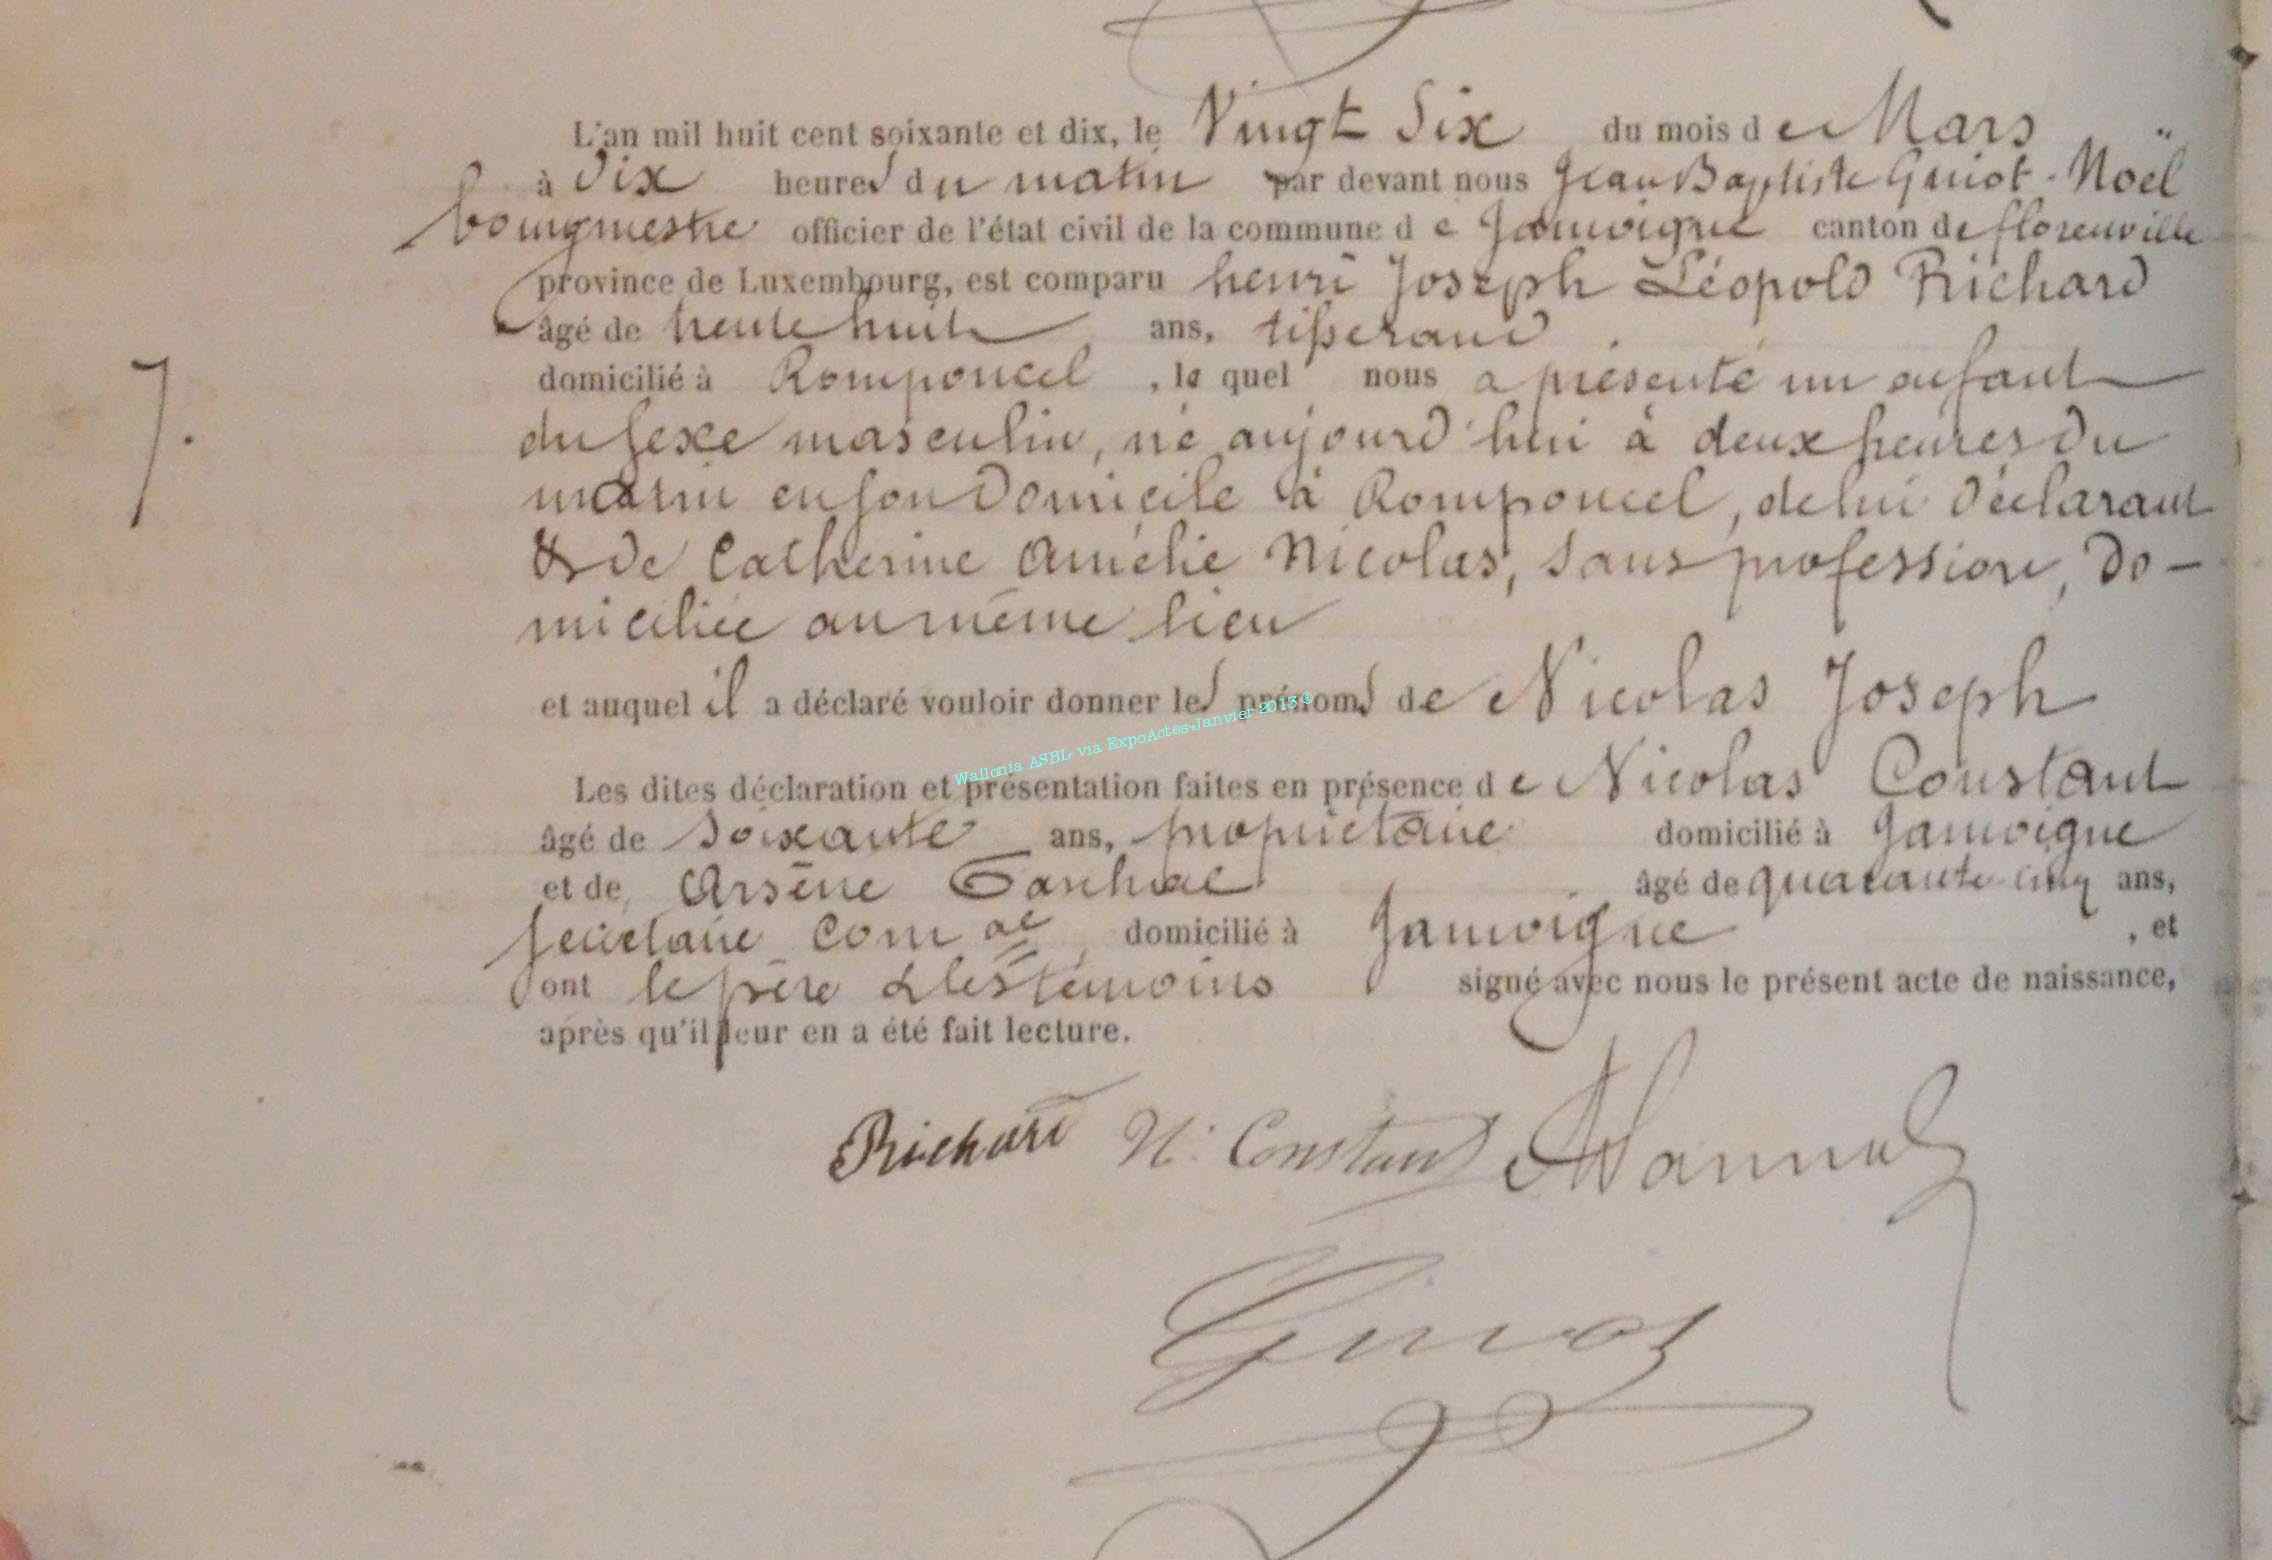 L'an mil huit cent soixante et dix, le Vingt Six du mois de Mars
à dix heures du matin par devant nous Jean Baptiste Guiot-Noël
bourgmestre officier de l'état civil de la commune de Jamoigne canton de florenville
province de Luxembourg, est comparu henri Joseph Léopold Richard
âgé de trente huit ans, tisserand
7. domicilié à Romponcel, le quel nous a présenté un enfant
du sexe masculin, né aujourd'hui à deux heures du
matin en son domicile à Romponcel, de lui déclarant
& de Catherine Amélie Nicolas, sans profession, do-
miciliée au même lieu
et auquel il a déclaré vouloir donner les prénoms de Nicolas Joseph
Wallonia ASBL via ExpoActes-Janvier 2013 ©
Les dites déclaration et présentation faites en présence de Nicolas Constant
âgé de soixante ans, propriétaire domicilié à Jamoigne
et de Arsène âgé de quarante-cinq ans,
secrétaire com.al domicilié à Jamoigne, et
ont le père & les témoins signé avec nous le présent acte de naissance,
après qu'il leur en a été fait lecture.
Richard N. Constant
Guiot